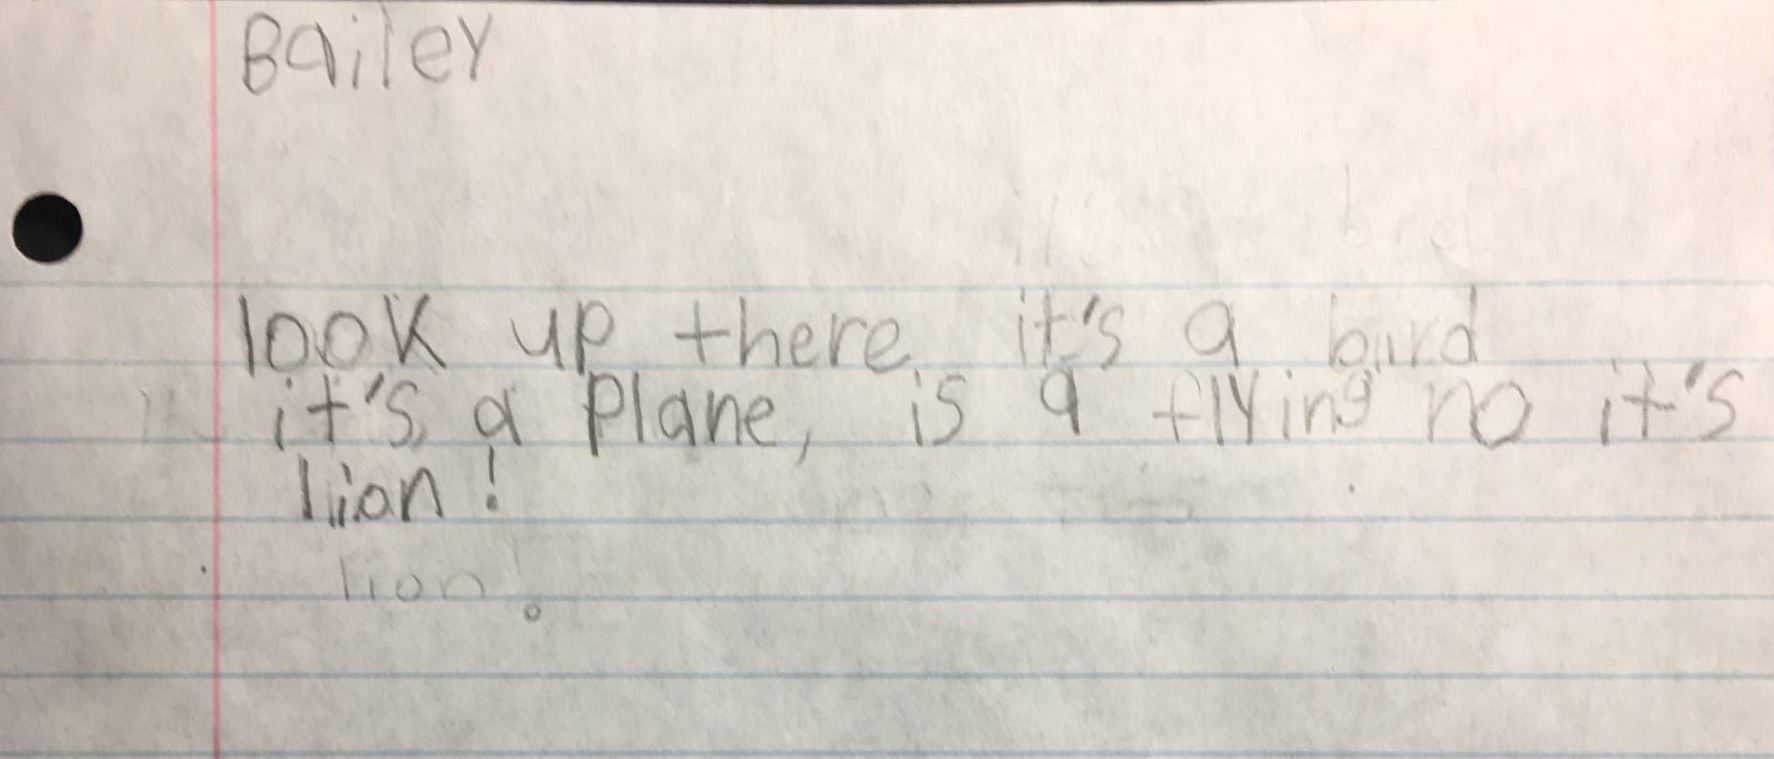 Bailey
look up there, it's a bird
it's a plane, is a flying no it's
lion!
lion!